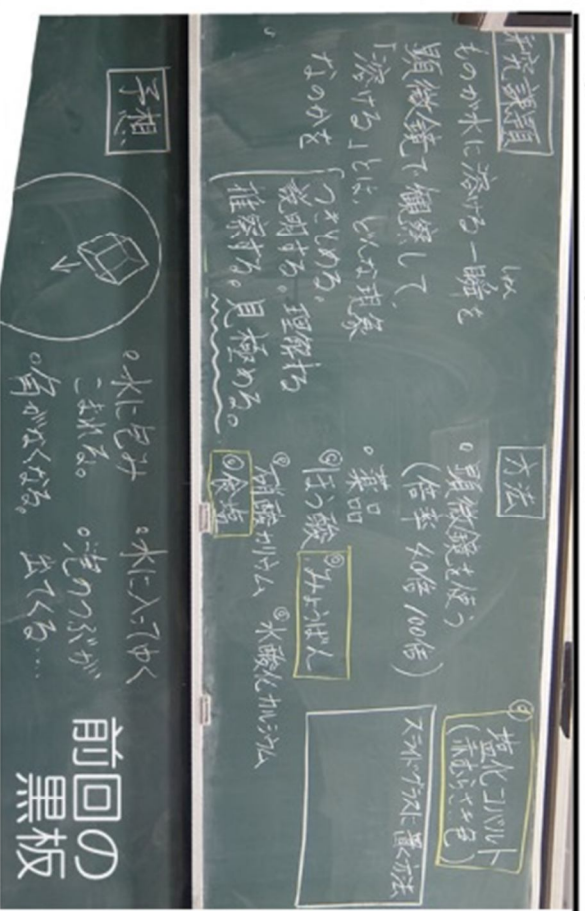 研究課題
ものが水に溶ける一瞬を
しゅん
顕微鏡で観察して
「溶ける」とは、どんな現象
なのかを
つきとめる。
説明する。理解する
推察する。見極める。
方法
・顕微鏡を使う
(倍率 40倍 100倍)
・薬品
◎ほう酸 ◎みょうばん
◎硝酸カリウム ◎水酸化カルシウム
◎食塩
◎塩化コバルト
(赤むらさき色)
スライドグラスに置く方法
予想
・水に包み
こまれる。
・角がなくなる。
・水に入ってゆく
・泡のつぶが
出てくる…
前回の
黒板